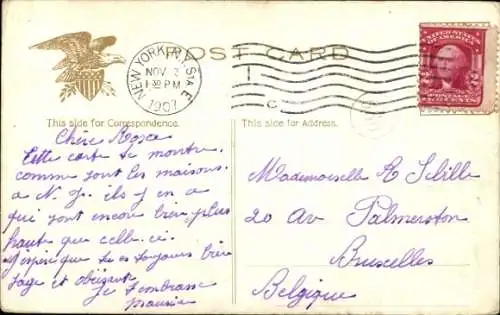 POST CARD
NEW YORK, N.Y. STA. E
NOV 3
1 30 PM
1907
C
UNITED STATES OF AMERICA
POSTAGE
2 TWO CENTS 2
This side for Correspondence.
This side for Address.
Chère Rosa
Cette carte te montre
comme sont les maisons
a N. Y. ils y en a
qui sont encore bien plus
haute que celle-ci.
J'espère que tu es toujours bien
sage et obéigante
Je t'embrasse
Maurice
Mademoiselle R Schille
20 Av Palmerston
Bruxelles
Belgique